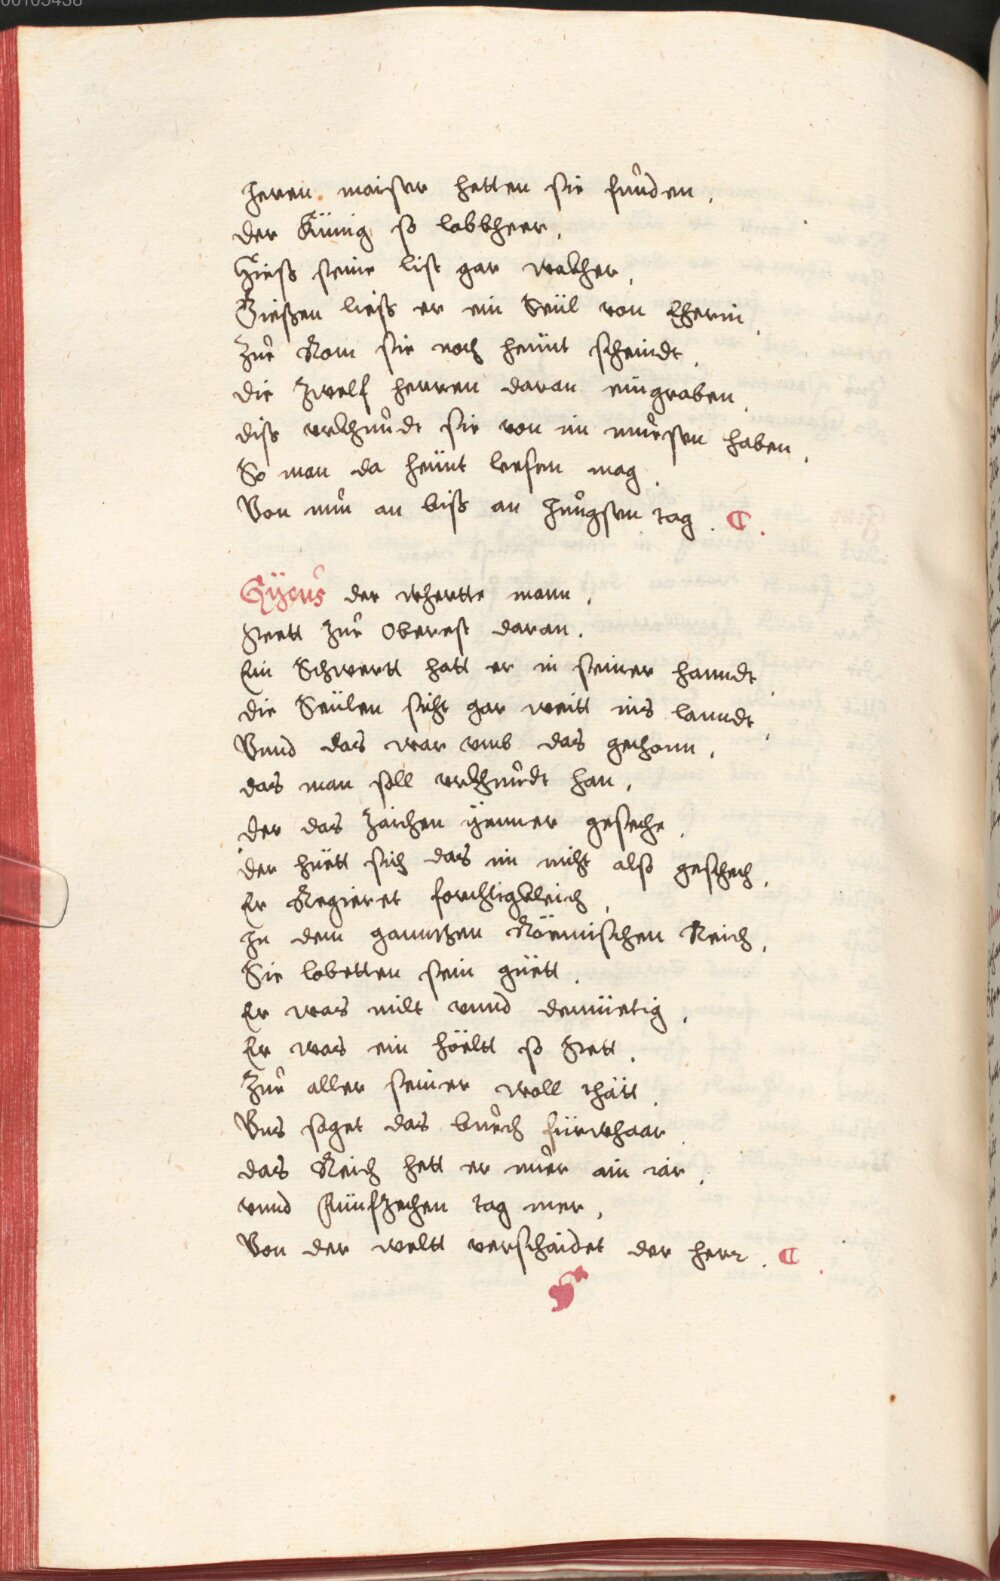 00105438
Heren. maister hetten sie fůnden.
der Künig so lobbheer.
Hieß seine list gar wakher.
Gießen ließ er ein Seül von Eherin.
Zůe Rom sie noch heünt scheindt.
die Zwelf herren daran eingraben.
diß vrkhůndt sie von im můesen haben.
So man da heünt leesen mag.
Von nůn an biß an Jůngsten tag. ¶.

Gÿeůs der whertte mann.
Stett zůe Oberest daran.
Ein Schwertt hatt er in seiner hanndt.
die Seülen sicht gar weitt ins lanndt.
Vnnd das war vmb das gethonn.
das man soll vrkhůndt han.
der das zaichen ÿemer geseche.
der hüett sich das im nicht also geschech.
Er Regieret forchtigkleich.
In dem ganntzen Röemischen Reich.
Sie lobetten sein güett.
Er was milt vnnd demüetig.
Er was ein höeltt so Stett.
Zůe aller seiner woll thätt.
Vns saget das bůech fürwhaar.
das Reich hett er nůer ain iar.
vnnd Fünfzechen tag mer.
Von der weltt verschaidet der herr. ¶.